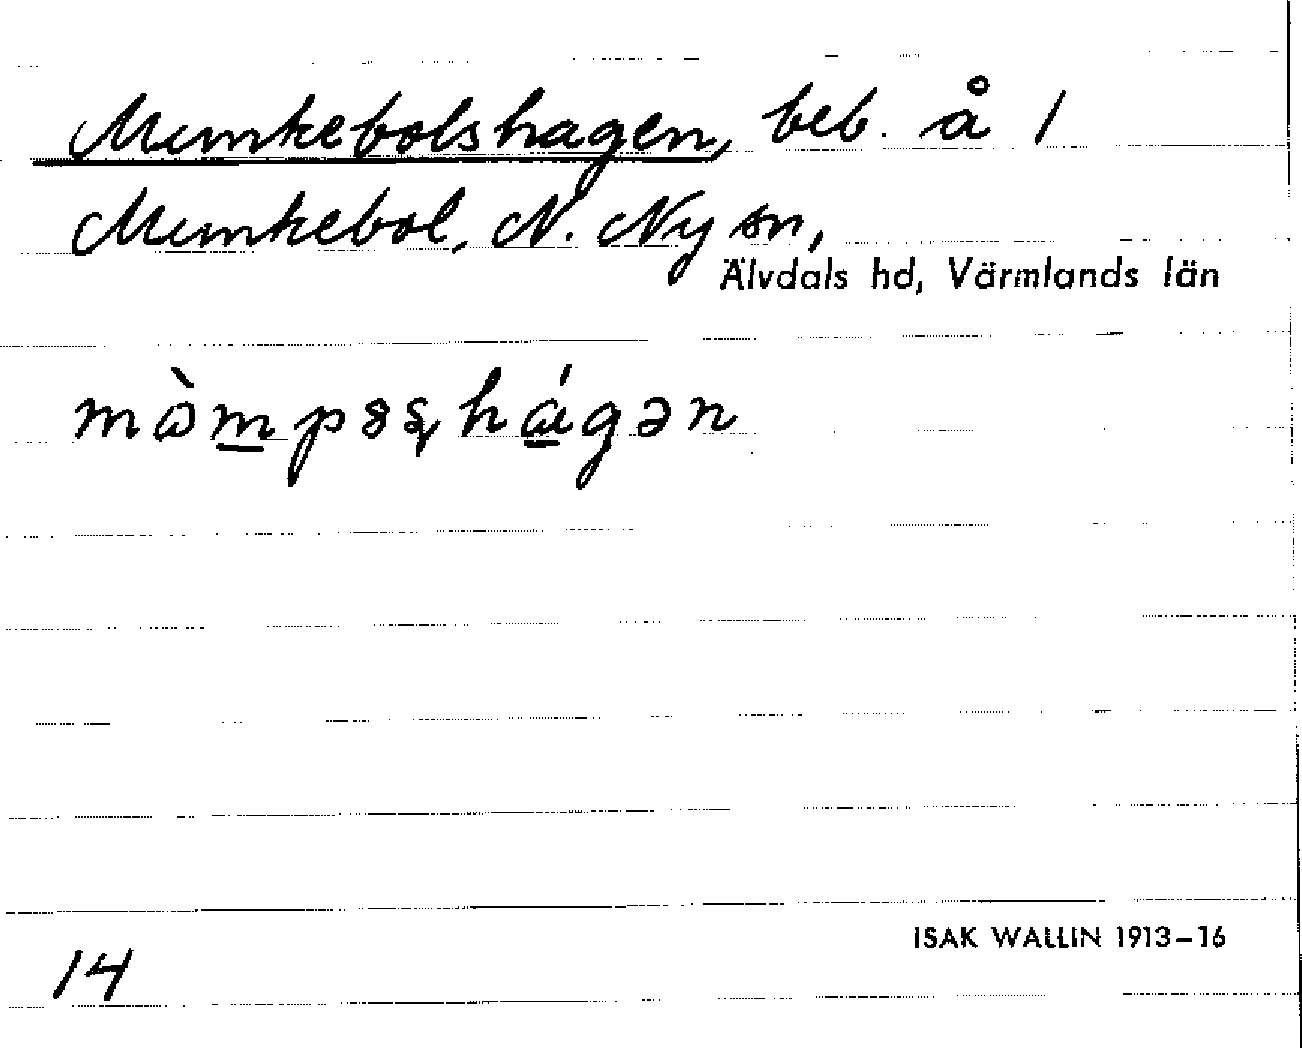 Munkebolshagen, beb. å 1
Munkebol, N. Ny sn,
Älvdals hd, Värmlands län
ISAK WALLIN 1913-16
14